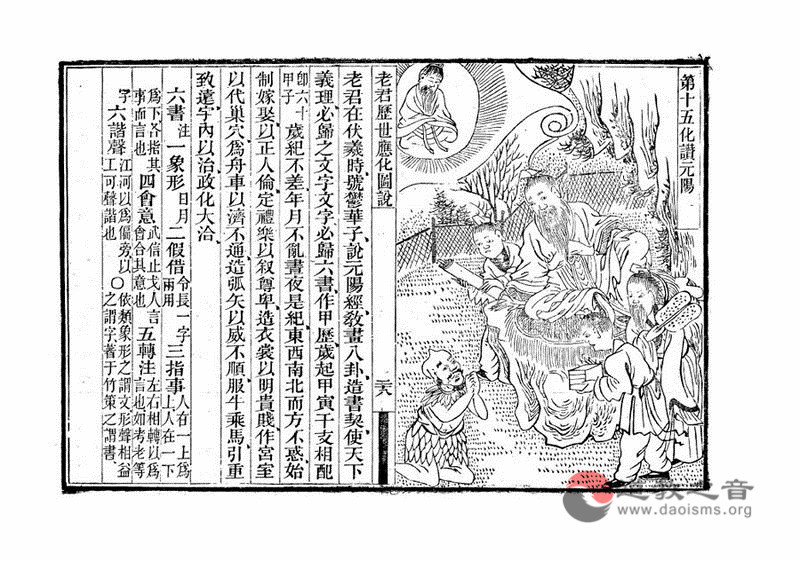 第十五化讚元陽
老君歷世應化圖說
二八
老君在伏羲時號鬱華子說元陽經教畫八卦造書契使天下
義理必歸之文字文字必歸六書作甲歷歲起甲寅干支相配
即六十甲子歲紀不差年月不亂晝夜是紀東西南北而方不惑始
制嫁娶以正人倫定禮樂以叙尊卑造衣裳以明貴賤作宮室
以代巢穴爲舟車以濟不通造弧矢以威不順服牛乘馬引重
致遠宇內以治政化大洽
六書注一象形日月二假借令長一字兩用三指事人在一上爲上人在一下
爲下各指其事而言也四會意武信止戈人言會合其意也五轉注左右相轉以爲言也如考老等
字六諧聲江河以爲偏旁以工可聲諧也〇依類象形之謂文形聲相益之謂字著于竹策之謂書
道教之音
www.daoisms.org